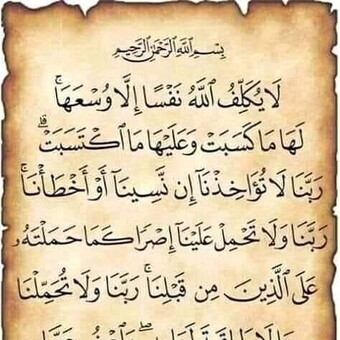 بِسْمِ ٱللَّهِ ٱلرَّحْمَٰنِ ٱلرَّحِيمِ
لَا يُكَلِّفُ ٱللَّهُ نَفْسًا إِلَّا وُسْعَهَا ۚ
لَهَا مَا كَسَبَتْ وَعَلَيْهَا مَا ٱكْتَسَبَتْ ۗ
رَبَّنَا لَا تُؤَاخِذْنَآ إِن نَّسِينَآ أَوْ أَخْطَأْنَا ۚ
رَبَّنَا وَلَا تَحْمِلْ عَلَيْنَآ إِصْرًا كَمَا حَمَلْتَهُۥ
عَلَى ٱلَّذِينَ مِن قَبْلِنَا ۚ رَبَّنَا وَلَا تُحَمِّلْنَا